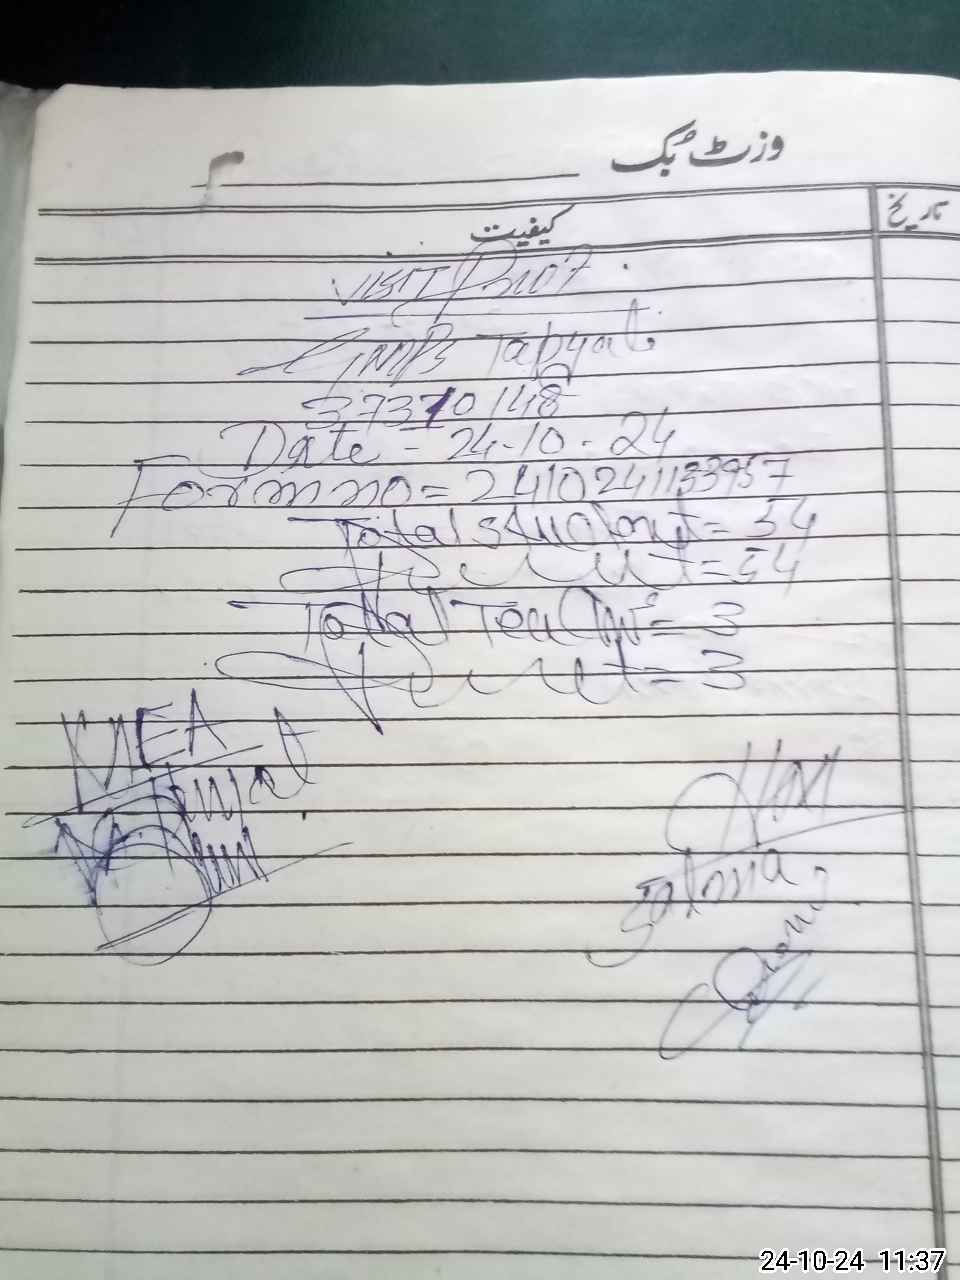 وزٹ بک
تاریخ
کیفیت
VISIT
GMPS Tapyal
37310148
Date - 24-10-24
Form no = 2410241133957
Total Student = 54
= 54
Total Teacher = 3
= 3
MEA
Salma
24-10-24 11:37